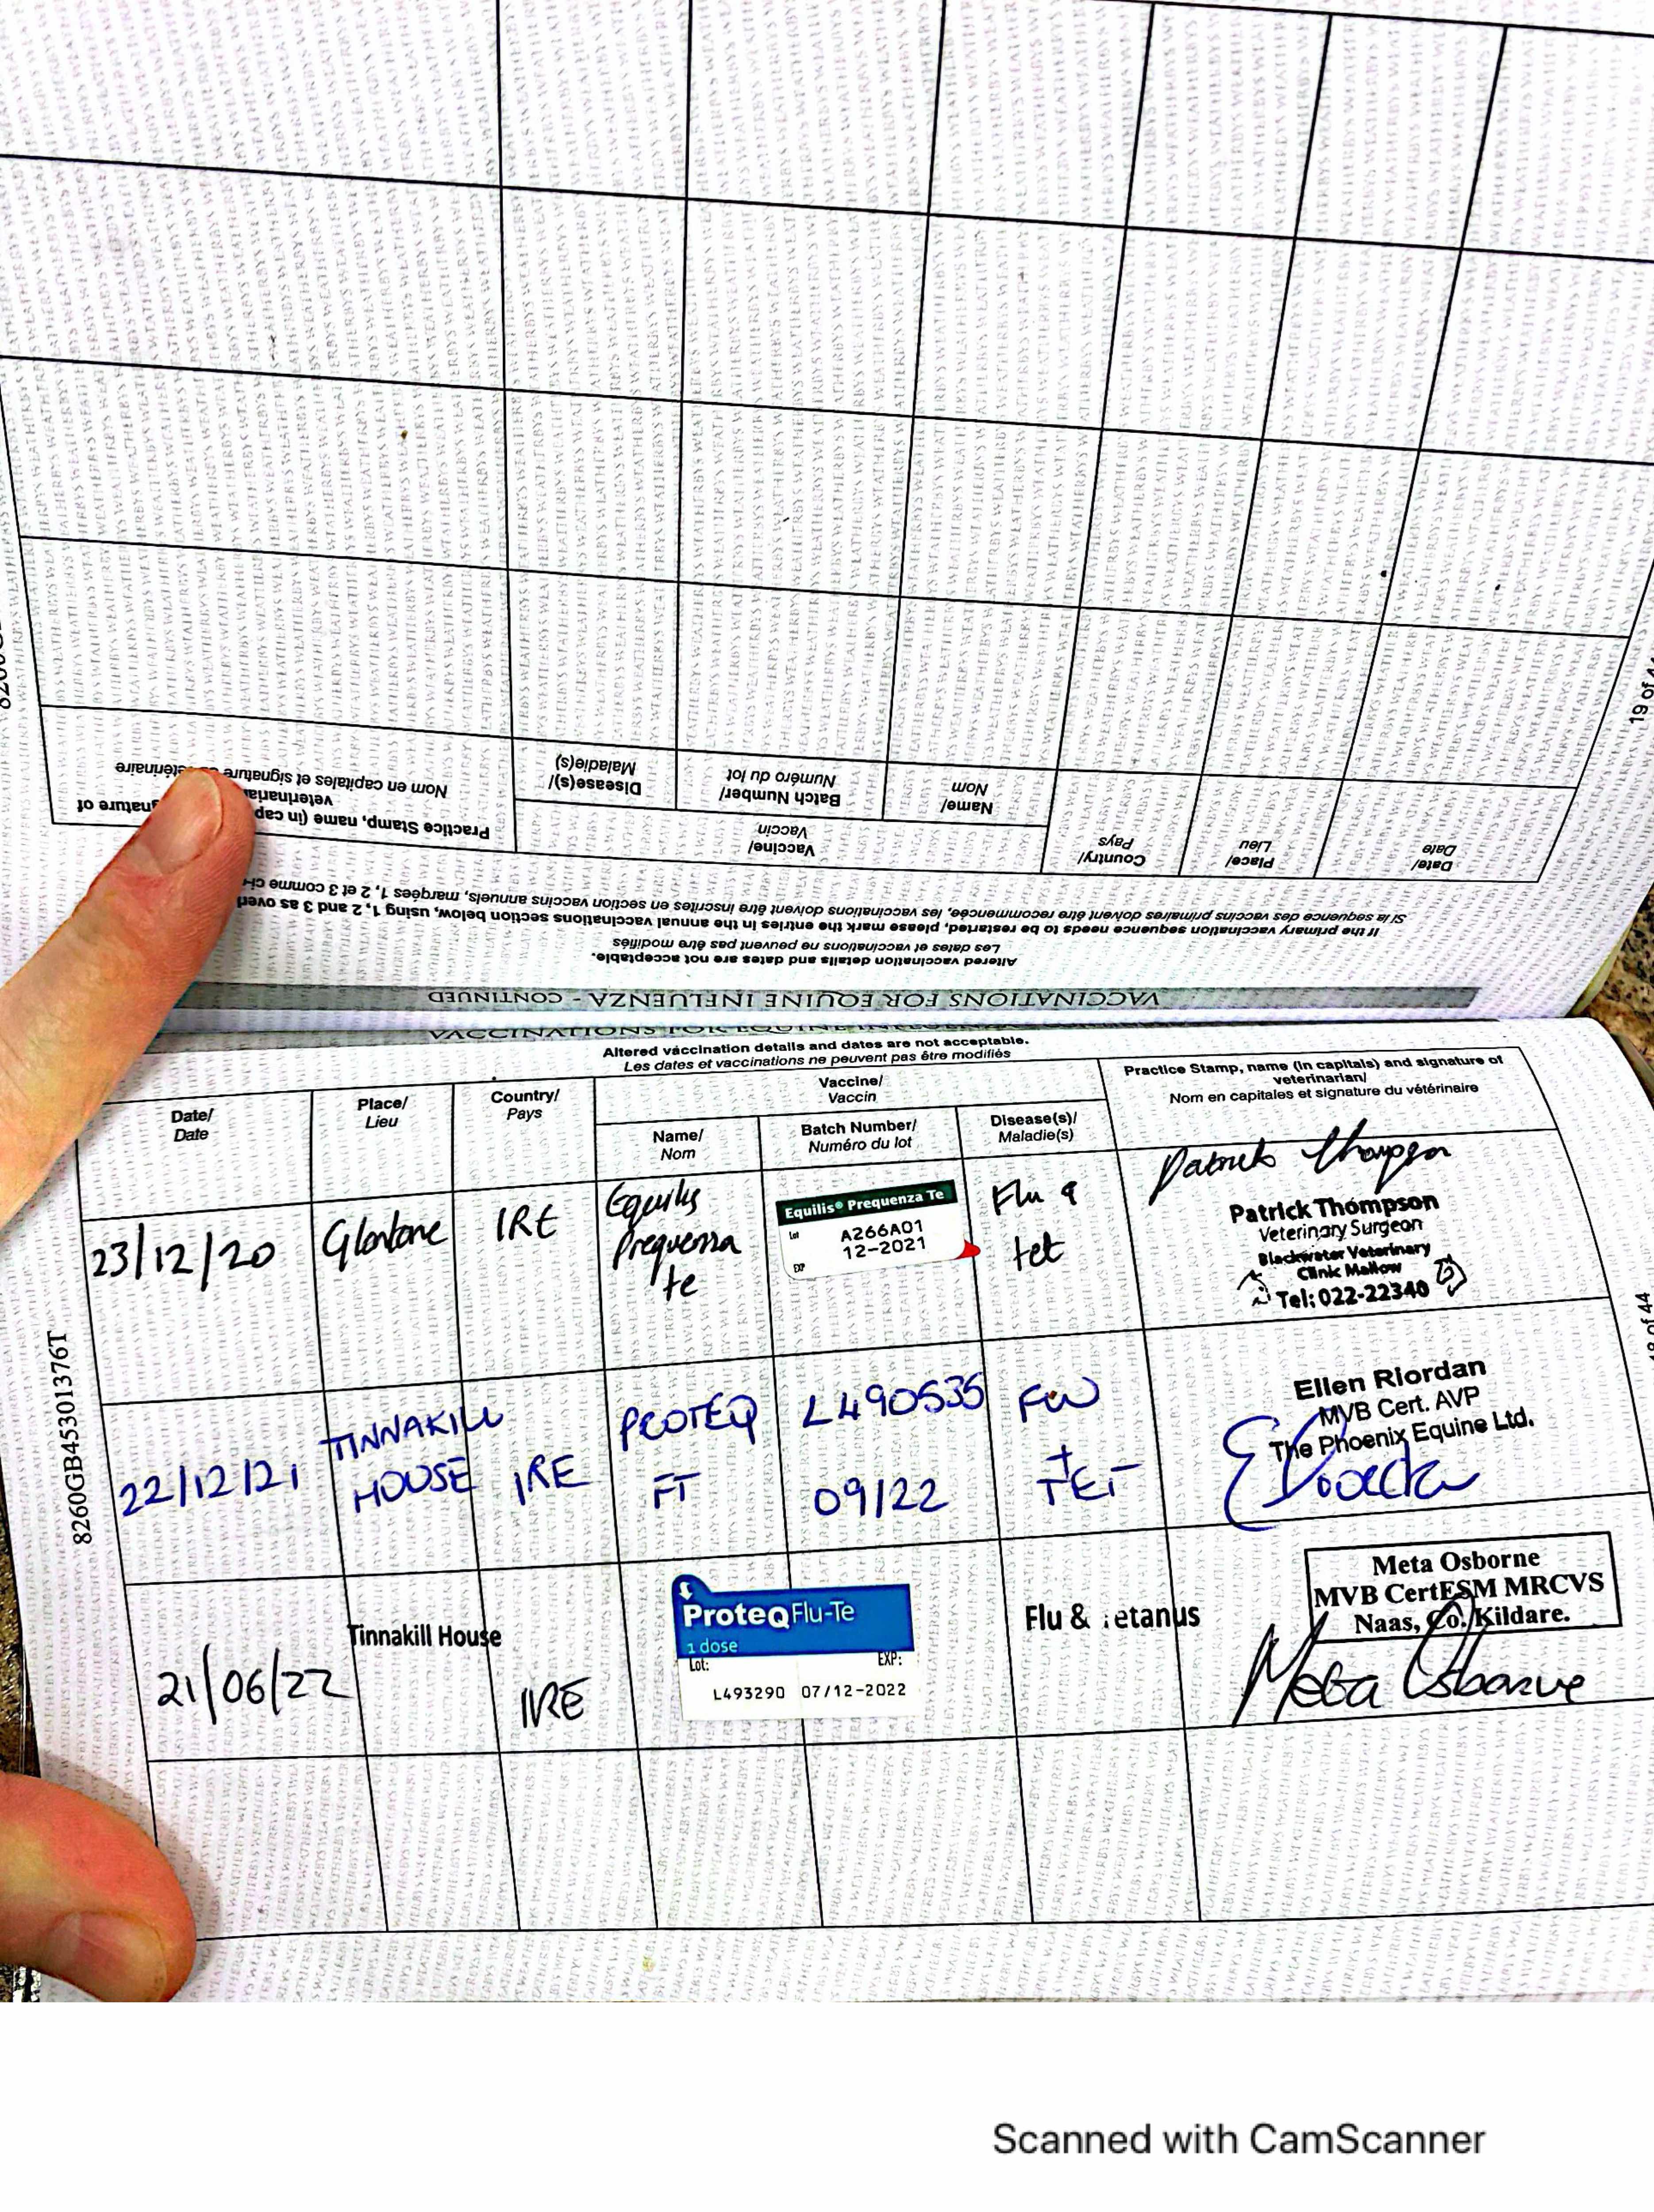 VACCINATIONS FOR EQUINE INFLUENZA - CONTINUED
Altered vaccination details and dates are not acceptable.
Les dates et vaccinations ne peuvent pas être modifiés
If the primary vaccination sequence needs to be restarted, please mark the entries in the annual vaccinations section below, using 1, 2 and 3 as
Si la sequence des vaccins primaires doivent être recommencée, les vaccinations doivent être inscrites en section vaccins annuels, marqées 1, 2 et 3 comme
Date/
Date
Place/
Lieu
Country/
Pays
Vaccine/
Vaccin
Name/
Nom
Batch Number/
Numéro du lot
Disease(s)/
Maladie(s)
Practice Stamp, name (in
Nom en capitales et signature
19 of
VACCINATIONS FOR EQUINE
Altered vaccination details and dates are not acceptable.
Les dates et vaccinations ne peuvent pas être modifiés
Date/
Date
Place/
Lieu
Country/
Pays
Vaccine/
Vaccin
Name/
Nom
Batch Number/
Numéro du lot
Disease(s)/
Maladie(s)
Practice Stamp, name (in capitals) and signature of
veterinarian/
Nom en capitales et signature du vétérinaire
23/12/20
IRE
Equilis
Prequenza
te
Equilis® Prequenza Te
Lot A266A01
EXP 12-2021
Flu &
tet
Patrick Thompson
Patrick Thompson
Veterinary Surgeon
Blackwater Veterinary
Clinic Mallow
Tel: 022-22340
22/12/21
TINNAKILL
HOUSE
IRE
PROTEQ
FT
L490535
09/22
FLU
+
TET
Ellen Riordan
MVB Cert. AVP
The Phoenix Equine Ltd.
21/06/22
Tinnakill House
IRE
ProteqFlu-Te
1 dose
Lot: EXP:
L493290 07/12-2022
Flu & etanus
Meta Osborne
MVB CertESM MRCVS
Naas, Co. Kildare.
Meta Osborne
8260GB45301376T
of 44
Scanned with CamScanner